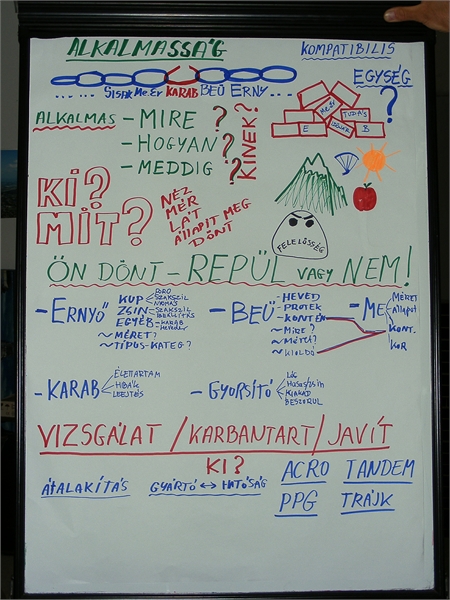 ALKALMASSÁG
KOMPATIBILIS
EGYSÉG
?
... ... SISAK Me.Er KARAB BEÜ ERNY ... ...
Me.Er
TUDÁS
E
B
ALKALMAS - MIRE ?
- HOGYAN ?
- MEDDIG ?
KINEK?
KI?
MIT?
NÉZ
MÉR
LÁT
ÁLLAPIT MEG
DÖNT
FELELŐSSÉG
ÖN DÖNT - REPÜL VAGY NEM!
- ERNYŐ
KUP
PORO
SZAKSZIL
NYOMÁS
ZSIN
SZAKSZIL
BEÁLLÍTÁS
EGYÉB
KARAB
Heveder
~ MÉRET?
~ TÍPUS-KATEG?
- BEÜ
HEVED
PROTEK
KONTÉN
~ Mire?
~ MÉTLÁ?
~ KIOLDÓ
- ME
MÉRET
Állapot
KONT.
KOR
- KARAB
ÉLETTARTAM
HIBÁK
LEEJTÉS
- GYORSÍTÓ
LÓG
KIAKAD
BESZORUL
VIZSGÁLAT / KARBANTART / JAVÍT
KI?
ÁTALAKÍTÁS
GYÁRTÓ ↔ HATÓSÁG
ACRO TANDEM
PPG TRÁJK